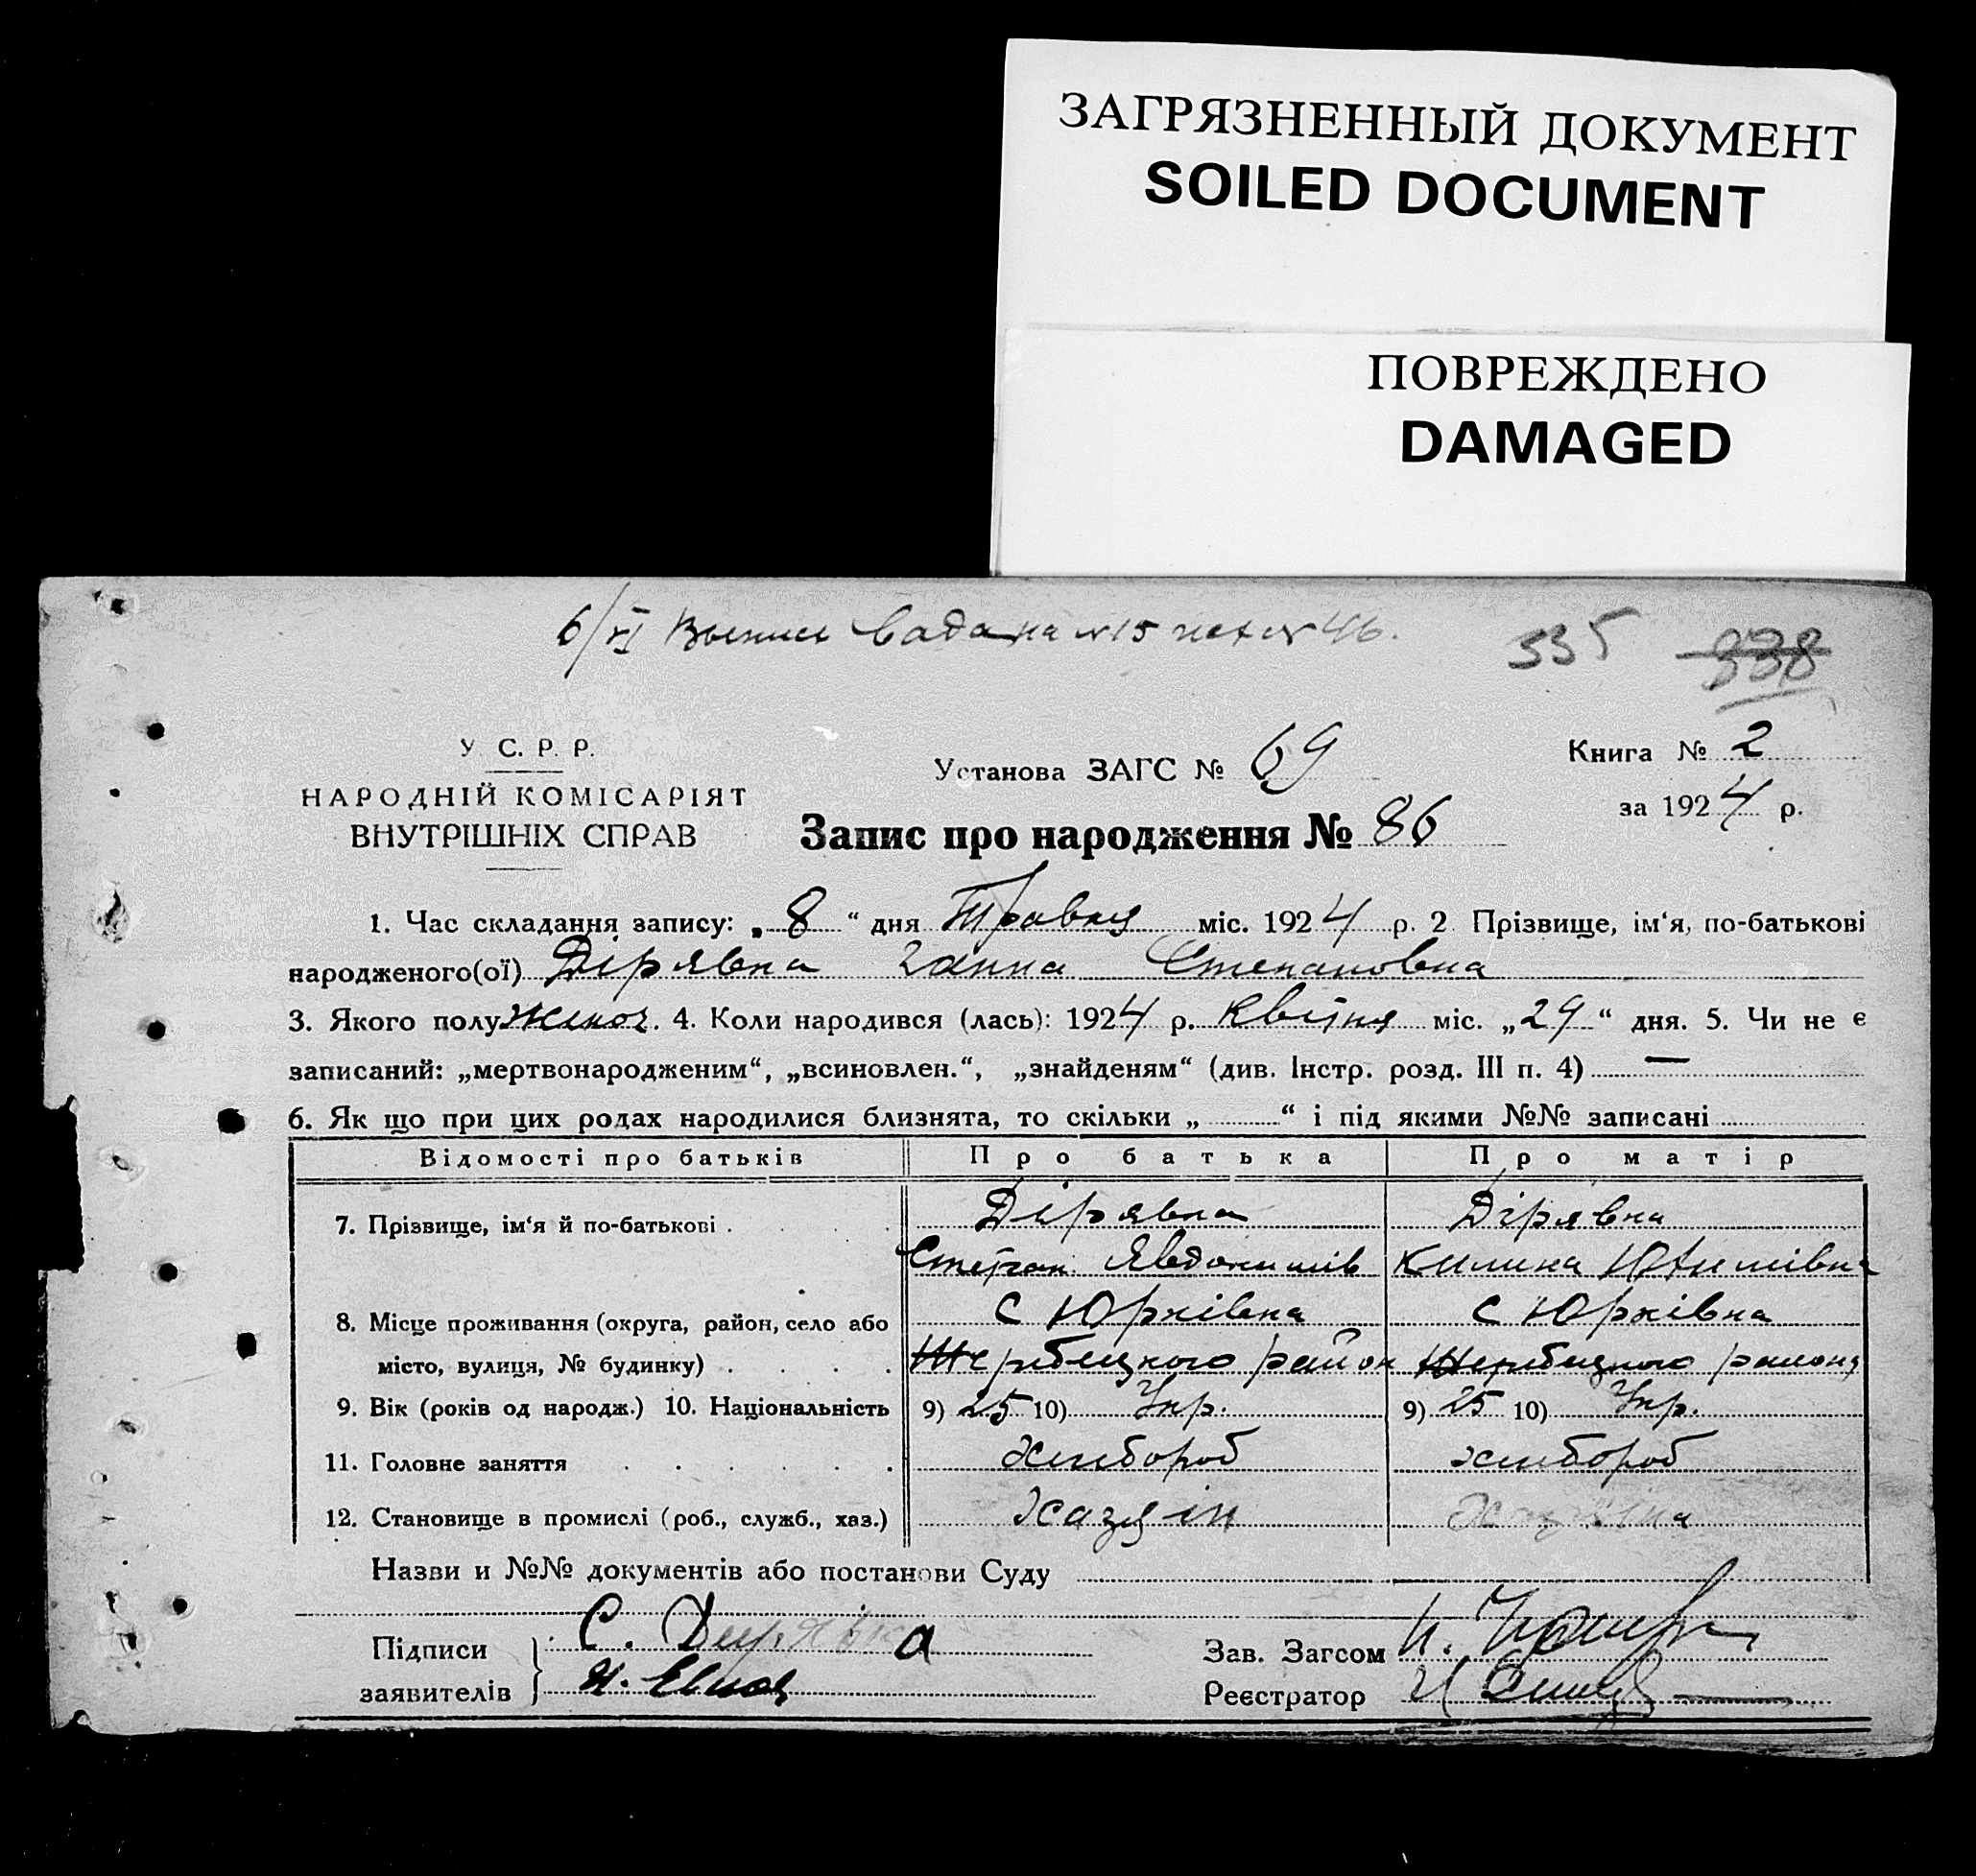 ЗАГРЯЗНЕННЫЙ ДОКУМЕНТ
SOILED DOCUMENT
ПОВРЕЖДЕНО
DAMAGED
335 338
У. С. Р. Р.
НАРОДНІЙ КОМІСАРІЯТ
ВНУТРІШНІХ СПРАВ
Установа ЗАГС № 69
Книга № 2
за 1924 р.
Запис про народження № 86
1. Час складання запису: „ 8 “ дня Травня міс. 1924 р. 2. Прізвище, ім‘я, по-батькові
народженого(ої) Дірявка Ганна Степановна
3. Якого полу жіноч. 4. Коли народився (лась): 1924 р. Квітня міс. „29“ дня. 5. Чи не є
записаний: „мертвонародженим“, „всиновлен.“, „знайденям“ (див. Інстр. розд. III п. 4) —
6. Як що при цих родах народилися близнята, то скільки „ “ і під якими №№ записані
Відомості про батьків Про батька Про матір
7. Прізвище, ім‘я й по-батькові Дірявка Дірявка
Степан Явдокимів Килина Юхимівна
8. Місце проживання (округа, район, село або с Юрківка с Юрківка
місто, вулиця, № будинку) Жеребецкого район Жеребецкого района
9. Вік (років од народж.) 10. Національність 9) 25 10) Укр. 9) 25 10) Укр.
11. Головне заняття хлібороб хлібороб
12. Становище в промислі (роб., служб., хаз.) Хазяін Хазяіна
Назви и №№ документів або постанови Суду
Підписи С. Дирявка
заявителів
Зав. Загсом
Реєстратор